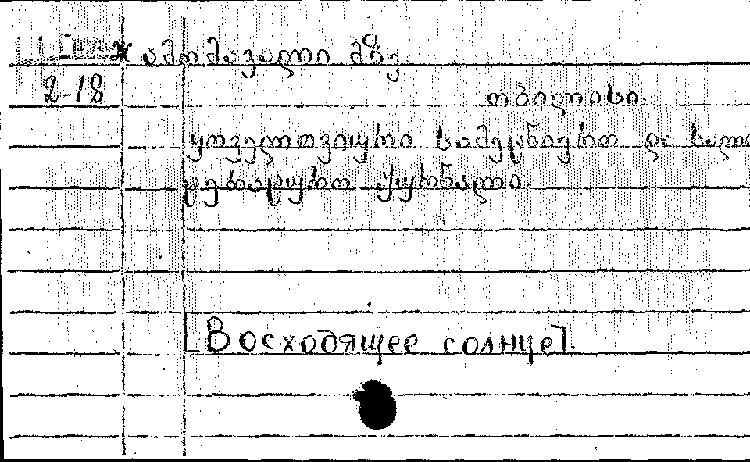 ამომავალი მზე.
2-18
თბილისი.
ყოველთვიური სამეცნიერო და სალი
ტერატურო ჟურნალი.
[Восходящее солнце].